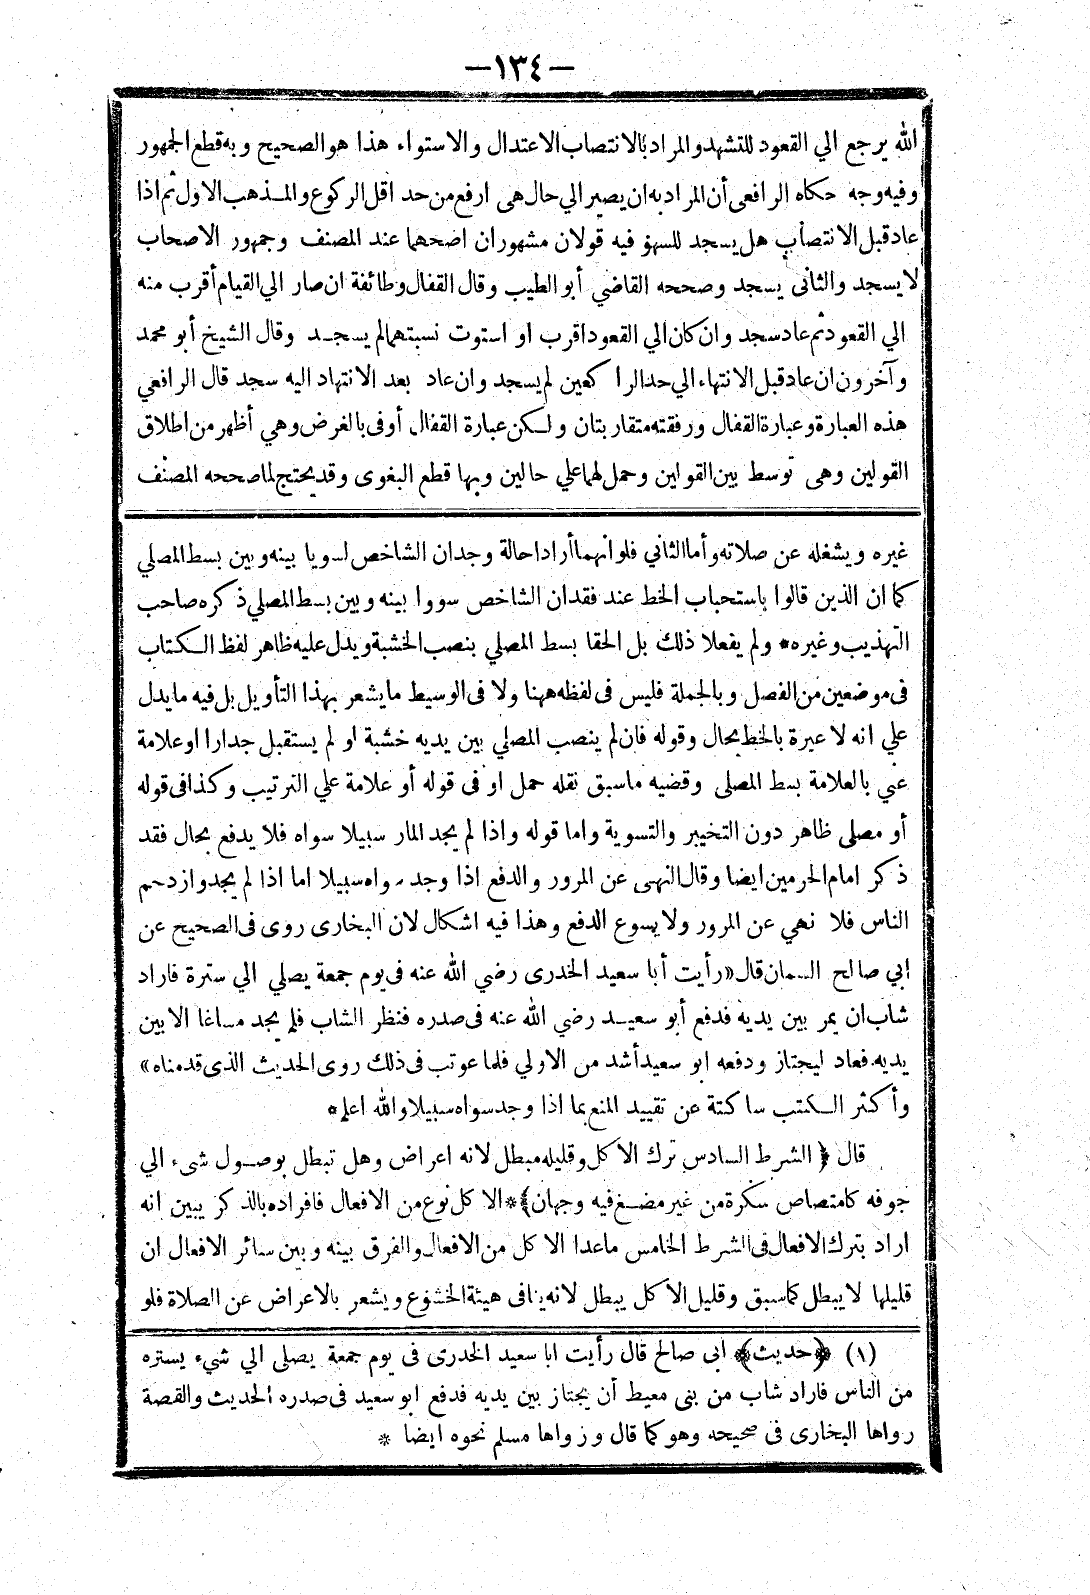 —١٣٤—
الله يرجع الي القعود للتشهد والمراد بالانتصاب الاعتدال والاستواء هذا هو الصحيح وبه قطع الجمهور
وفيه وجه حكاه الرافعى أن المراد به ان يصير الي حال هى ارفع من حد اقل الركوع والمذهب الاول ثم اذا
عاد قبل الانتصاب هل يسجد للسهو فيه قولان مشهوران اصحهما عند المصنف وجمهور الاصحاب
لا يسجد والثانى يسجد وصححه القاضي أبو الطيب وقال القفال وطائفة ان صار الي القيام أقرب منه
الي القعود ثم عاد سجد وان كان الي القعود اقرب او استوت نسبتهما لم يسجد وقال الشيخ أبو محمد
وآخرون ان عاد قبل الانتهاء الي حد الراكعين لم يسجد وان عاد بعد الانتهاد اليه سجد قال الرافعي
هذه العبارة وعبارة القفال ورفقته متقاربتان ولكن عبارة القفال أوفى بالغرض وهي أظهر من اطلاق
القولين وهى توسط بين القولين وحمل لهما علي حالين وبها قطع البغوى وقد يحتج لما صححه المصنف
غيره ويشغله عن صلاته وأما الثاني فلو انهما أرادا حالة وجدان الشاخص لسويا بينه وبين بسط المصلي
كما ان الذين قالوا باستحباب الخط عند فقدان الشاخص سووا بينه وبين بسط المصلي ذكره صاحب
التهذيب وغيره* ولم يفعلا ذلك بل الحقا بسط المصلي بنصب الخشبة ويدل عليه ظاهر لفظ الكتاب
فى موضعين من الفصل وبالجملة فليس فى لفظه ههنا ولا فى الوسيط ما يشعر بهذا التأويل بل فيه ما يدل
علي انه لا عبرة بالخط بحال وقوله فان لم ينصب المصلي بين يديه خشبة او لم يستقبل جدارا او علامة
عنى بالعلامة بسط المصلى وقضيه ما سبق نقله حمل او فى قوله أو علامة علي الترتيب وكذا فى قوله
أو مصلى ظاهر دون التخيير والتسوية واما قوله واذا لم يجد المار سبيلا سواه فلا يدفع بحال فقد
ذكر امام الحرمين ايضا وقال النهى عن المرور والدفع اذا وجد سواه سبيلا اما اذا لم يجد وازدحم
الناس فلا نهي عن المرور ولا يسوع الدفع وهذا فيه اشكال لان البخارى روى فى الصحيح عن
ابي صالح السمان قال «رأيت أبا سعيد الخدرى رضي الله عنه فى يوم جمعة يصلي الي سترة فاراد
شاب ان يمر بين يديه فدفع أبو سعيد رضي الله عنه فى صدره فنظر الشاب فلم يجد مساغا الا بين
يديه فعاد ليجتاز ودفعه ابو سعيد أشد من الاولي فلما عوتب فى ذلك روى الحديث الذى قدمناه»
وأكثر الكتب ساكتة عن تقييد المنع بما اذا وجد سواه سبيلا والله اعلم*
قال ﴿ الشرط السادس ترك الاكل وقليله مبطل لانه اعراض وهل تبطل بوصول شىء الي
جوفه كامتصاص سكرة من غير مضغ فيه وجهان﴾* الاكل نوع من الافعال فافراده بالذكر يبين انه
اراد بترك الافعال فى الشرط الخامس ما عدا الاكل من الافعال والفرق بينه وبين سائر الافعال ان
قليلها لا يبطل كما سبق وقليل الاكل يبطل لانه ينافى هيئة الخشوع ويشعر بالاعراض عن الصلاة فلو
(١) *﴿حديث﴾* ابى صالح قال رأيت ابا سعيد الخدرى فى يوم جمعة يصلى الي شيء يستره
من الناس فاراد شاب من بنى معيط أن يجتاز بين يديه فدفع ابو سعيد فى صدره الحديث والقصة
رواها البخارى فى صحيحه وهو كما قال وزواها مسلم نحوه ايضا *